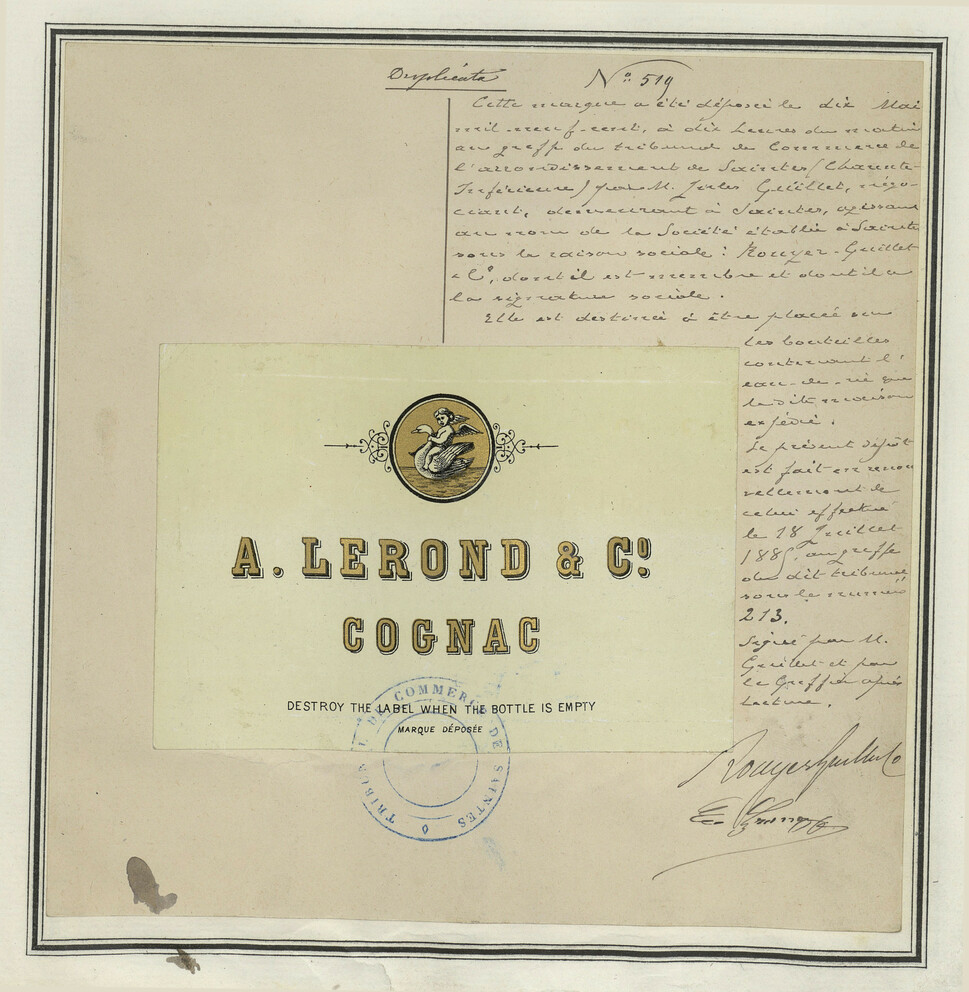 Duplicata
No. 519
Cette marque a été déposée le dix Mai
mil-neuf-cent, à dix heures du matin
au greffe du tribunal de Commerce de
l'arrondissement de Saintes (Charente-
Inférieure) par M. Jules Guillet, négo-
ciant, demeurant à Saintes, agissant
au nom de la Société établie à Saintes
sous la raison sociale : Rouyer-Guillet
& Co, dont il est membre et dont il a
la signature sociale.
Elle est destinée à être placée sur
les bouteilles
contenant l'
eau-de-vie que
la dite maison
expédie.
Le présent dépôt
est fait en renou
vellement de
celui effectué
le 18 Juillet
1885, au greffe
du dit tribunal
sous le numéro
213.
Signé par M.
Guillet et par
le Greffier après
lecture.
A. LEROND & Co
COGNAC
DESTROY THE LABEL WHEN THE BOTTLE IS EMPTY
MARQUE DÉPOSÉE
TRIBUNAL DE COMMERCE DE SAINTES
Rouyer Guillet & Co